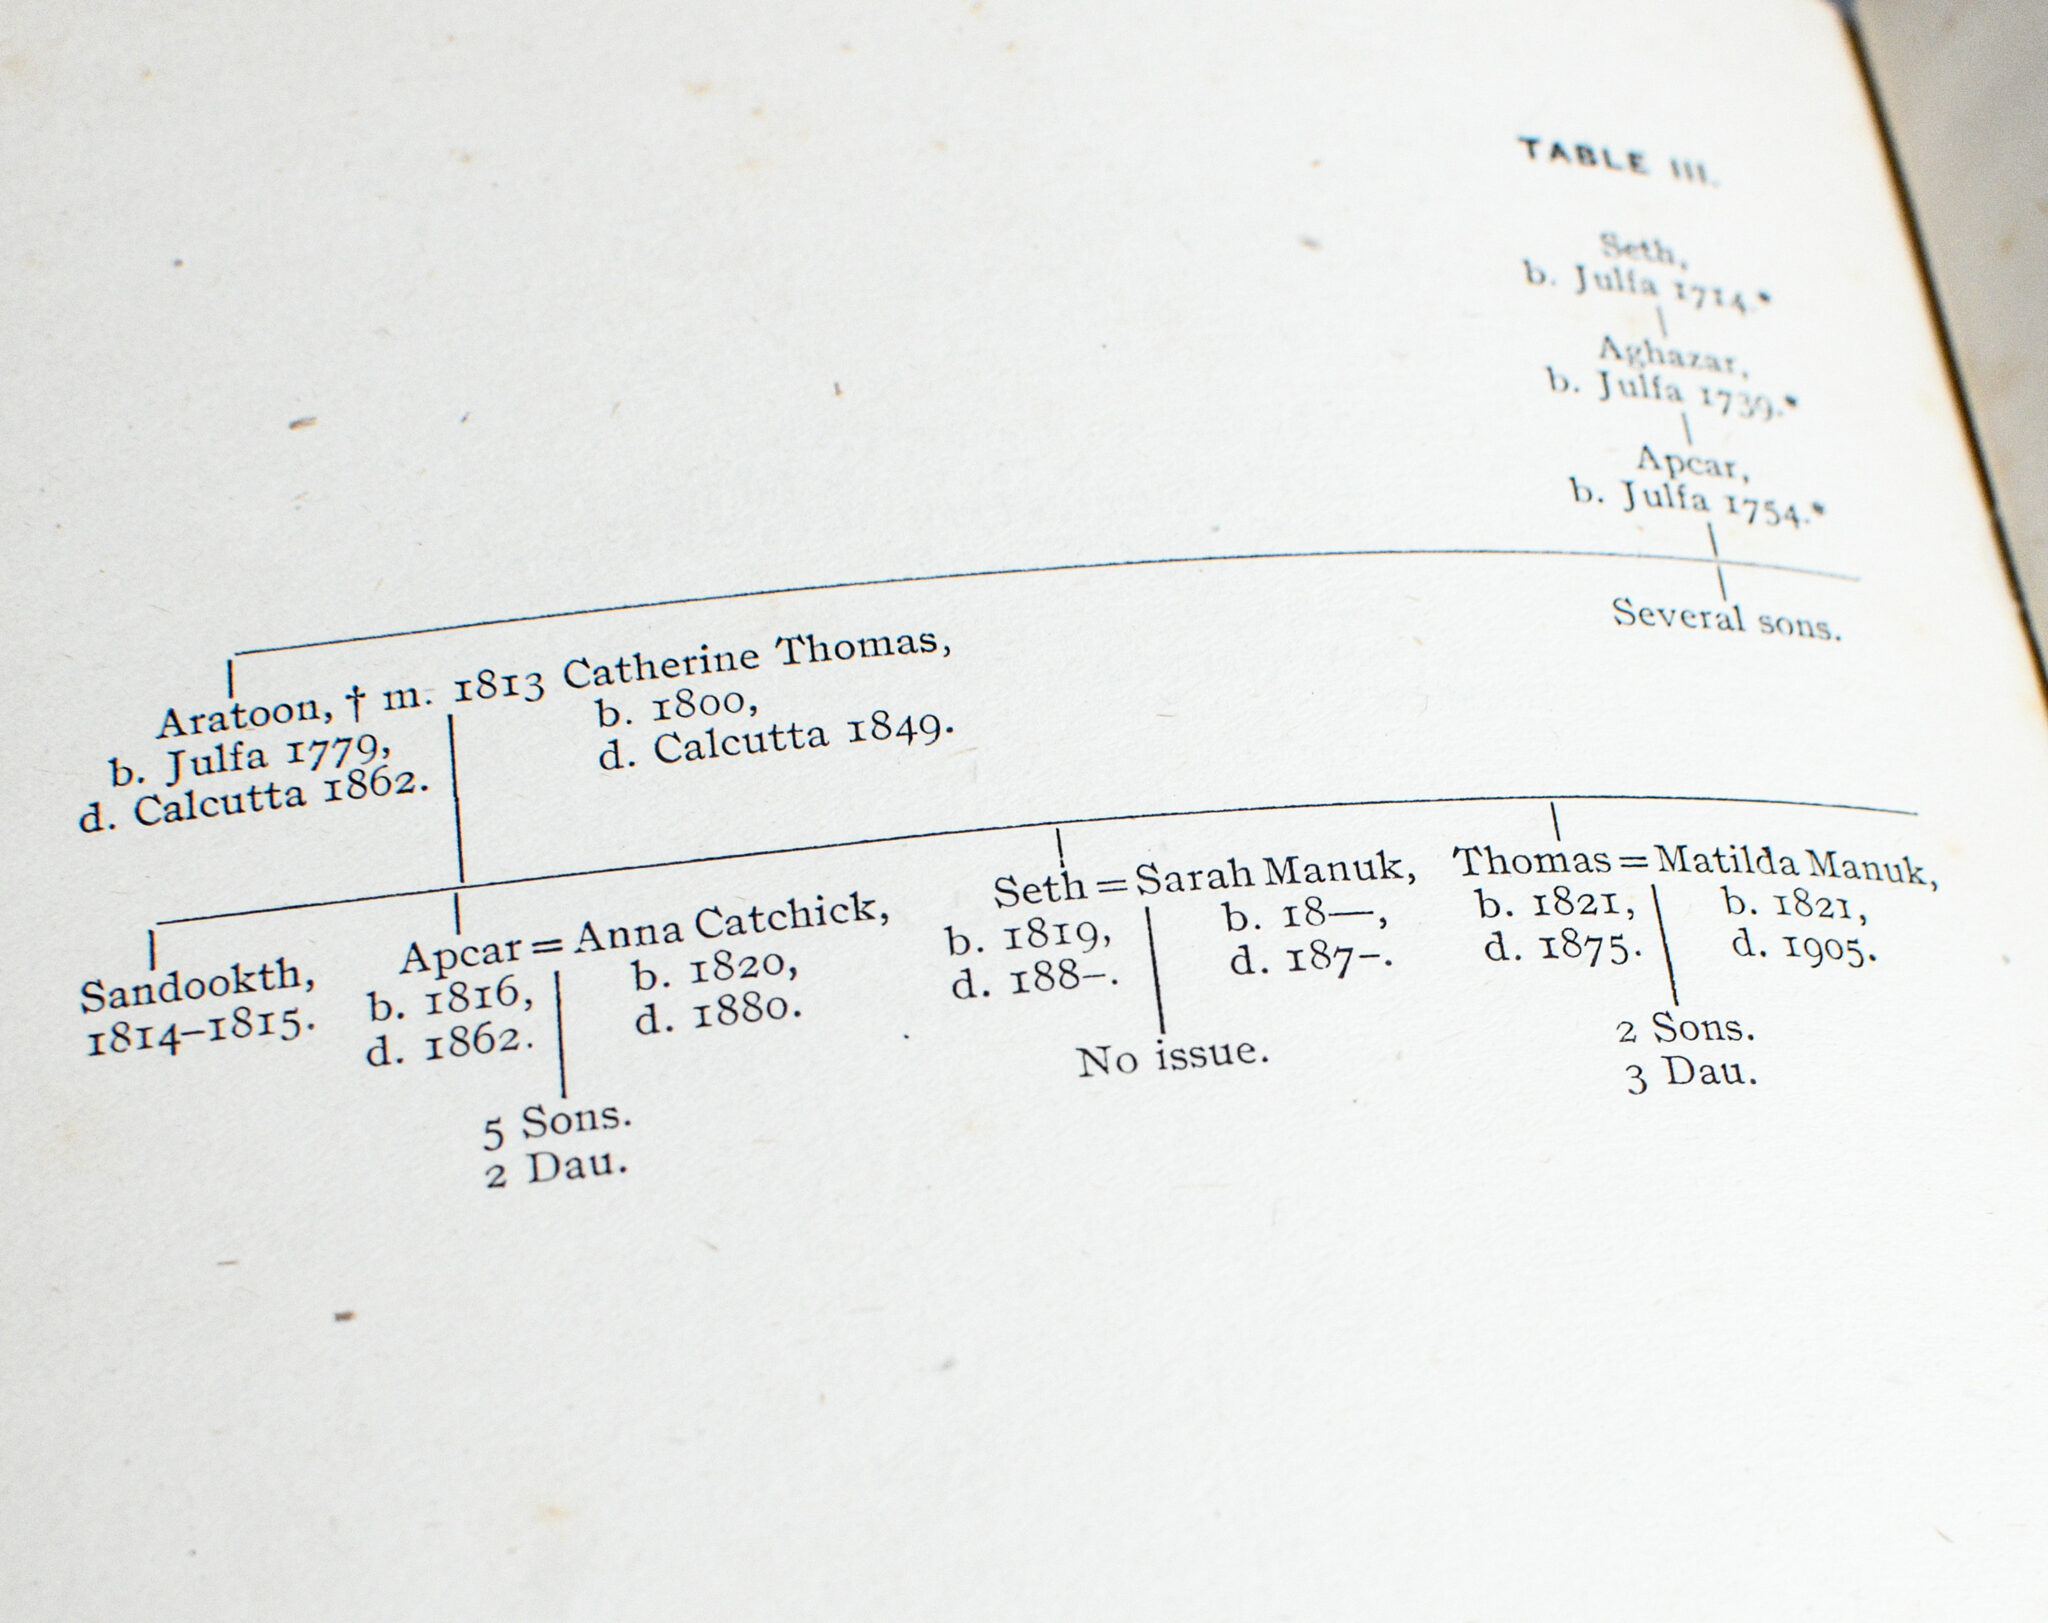 TABLE III.
Seth,
b. Julfa 1714.*
Aghazar,
b. Julfa 1739.*
Apcar,
b. Julfa 1754.*
Several sons.
Aratoon, † m. 1813 Catherine Thomas,
b. Julfa 1779,
d. Calcutta 1862.
b. 1800,
d. Calcutta 1849.
Sandookth,
1814–1815.
Apcar = Anna Catchick,
b. 1816,
d. 1862.
b. 1820,
d. 1880.
5 Sons.
2 Dau.
Seth = Sarah Manuk,
b. 1819,
d. 188–.
b. 18—,
d. 187–.
No issue.
Thomas = Matilda Manuk,
b. 1821,
d. 1875.
b. 1821,
d. 1905.
2 Sons.
3 Dau.